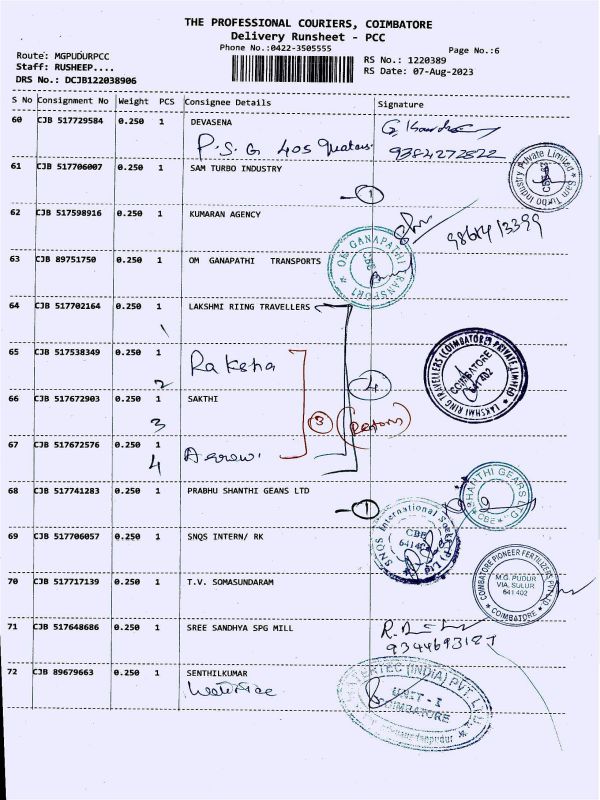 THE PROFESSIONAL COURIERS, COIMBATORE
Delivery Runsheet - PCC
Phone No.:0422-3505555
Page No.:6
Route: MGPUDURPCC
Staff: RUSHEEP....
DRS No.: DCJB122038906
RS No.: 1220389
RS Date: 07-Aug-2023
S No Consignment No Weight PCS Consignee Details Signature
60 CJB 517729584 0.250 1 DEVASENA
P.S.G 405 Quaters
9384272822
61 CJB 517706007 0.250 1 SAM TURBO INDUSTRY
Sam Turbo Industry Private Limited
CBE-62
1
62 CJB 517598916 0.250 1 KUMARAN AGENCY
63 CJB 89751750 0.250 1 OM GANAPATHI TRANSPORTS
OM GANAPATHI TRANSPORT
CBE
64 CJB 517702164 0.250 1 LAKSHMI RIING TRAVELLERS
1
65 CJB 517538349 0.250 1
Raksha
2
LAKSHMI RING TRAVELLERS (COIMBATORE) PRIVATE LIMITED
COIMBATORE
641 402
4
66 CJB 517672903 0.250 1 SAKTHI
3
3
67 CJB 517672576 0.250 1
4
68 CJB 517741283 0.250 1 PRABHU SHANTHI GEANS LTD
SHANTHI GEARS LTD
CBE
1
69 CJB 517706057 0.250 1 SNQS INTERN/ RK
SNQS International
CBE
70 CJB 517717139 0.250 1 T.V. SOMASUNDARAM
COIMBATORE PIONEER FERTILIZERS PVT LTD
M.G. PUDUR
VIA. SULUR
641 402
COIMBATORE
71 CJB 517648686 0.250 1 SREE SANDHYA SPG MILL
72 CJB 89679663 0.250 1 SENTHILKUMAR
(INDIA) PVT. LTD
UNIT - I
COIMBATORE